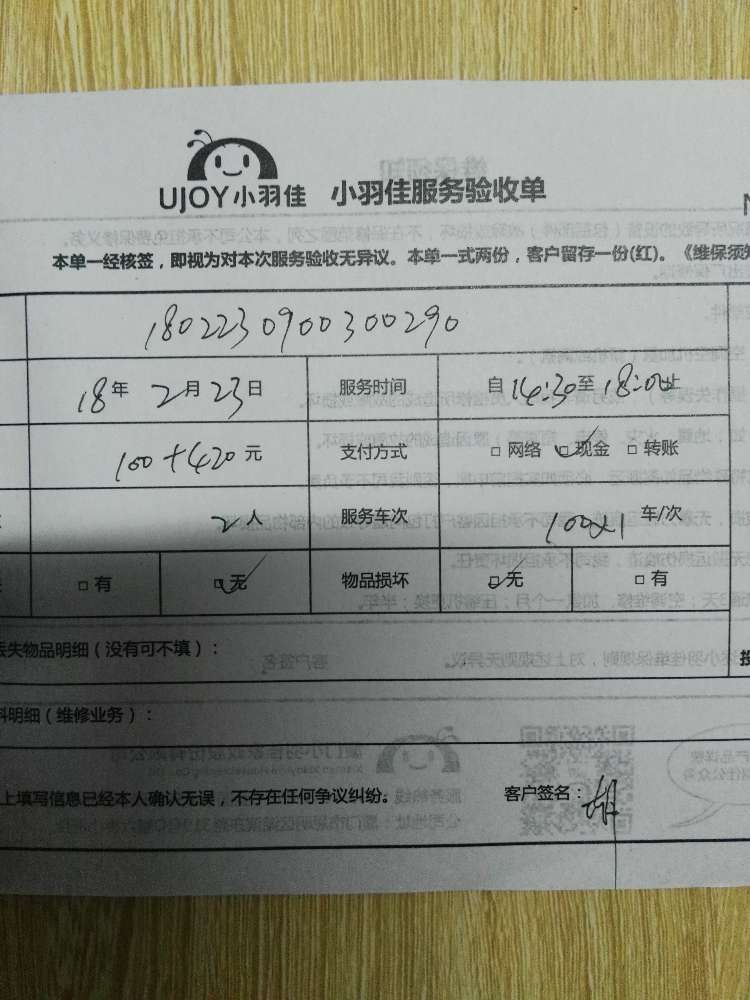 UJOY小羽佳 小羽佳服务验收单
本单一经核签，即视为对本次服务验收无异议。本单一式两份，客户留存一份(红)。《维保须知
180223090030029​0
18年 2月23日 服务时间 自14:30至18:00止
100+420元 支付方式 □网络 ☑现金 □转账
2人 服务车次 100x1 车/次
□有 ☑无 物品损坏 ☑无 □有
丢失物品明细（没有可不填）：
料明细（维修业务）：
上填写信息已经本人确认无误，不存在任何争议纠纷。 客户签名：胡